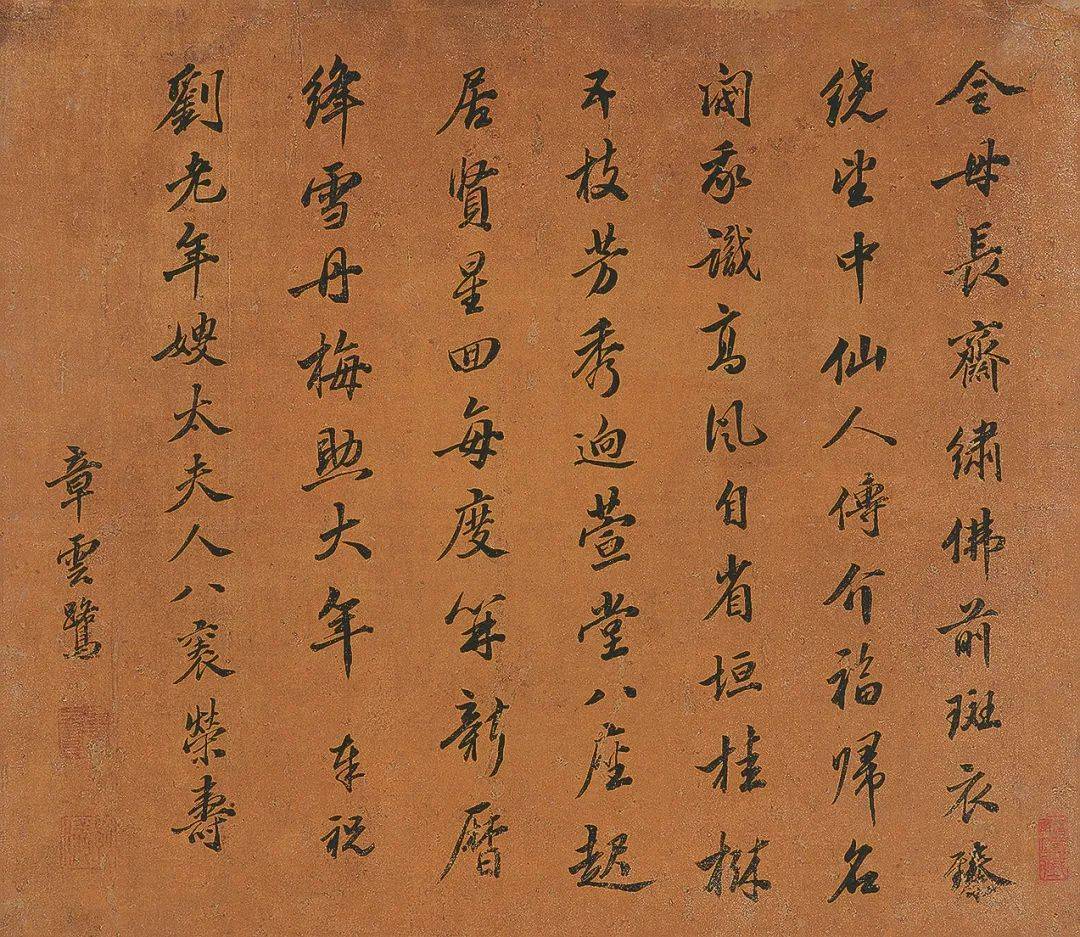 令母長齋繡佛前斑衣
繞坐中仙人傳介福歸名
閥我識高風自省垣桂
五枝芳秀迥萱堂八座起
居賢星回每度筭新曆
絳雪丹梅助大年 奉祝
劉老年嫂太夫人八袠榮壽
章雲鷺